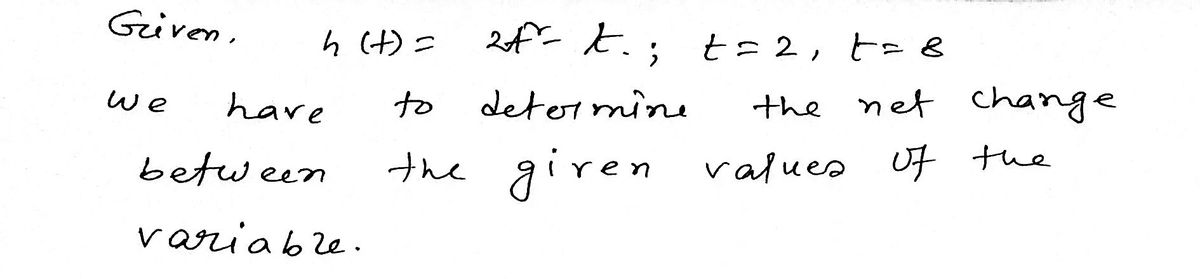 Given. h(t) = 2t² - t. ; t = 2, t = 8
we have to determine the net change
between the given values of the
variable.